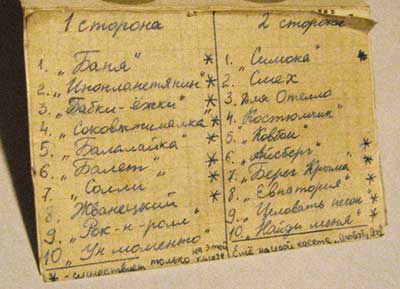 1 сторона
1. „Баня" *
2. „Инопланетянин" *
3. „Бабки-ёжки" *
4. „Соковыжималка" *
5. „Балалайка" *
6. „Балет" *
7. „Солли" *
8. Жванецкий *
9. „Рок-н-ролл"
10. „Ун моменто"
2 сторона
1. „Симона" *
2. Смех
3. Для Отелло
4. „Костюмчик"
5. „Ковбои"
6. „Айсберг" *
7. „Берег Крыма" *
8. „Евпатория" *
9. „Целовать песок" *
10. „Найди меня" *
* - существует только на этой касете! Ещё на моей касете